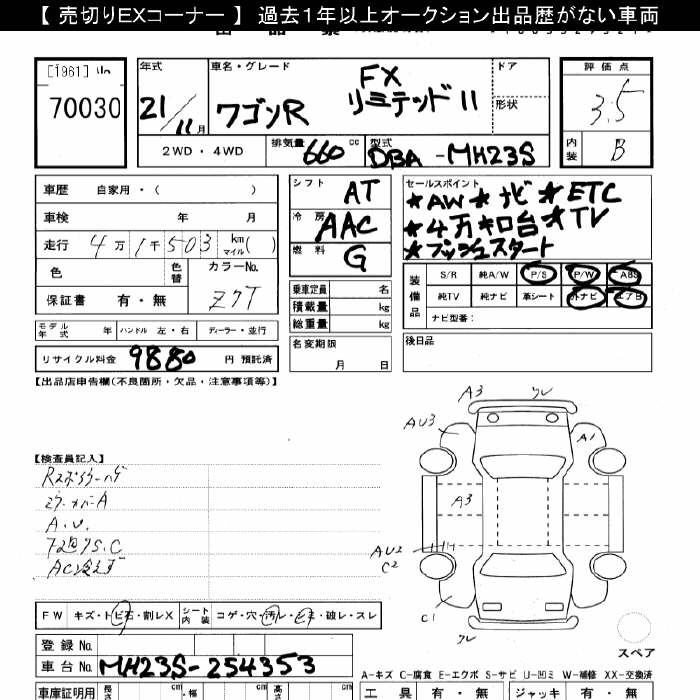 【 売切りEXコーナー 】 過去１年以上オークション出品歴がない車両
[1961]
70030
年式
21/11月
車名・グレード
ワゴンR FX リミテッドII
ドア
形状
2WD ・ 4WD
排気量 660 cc
型式 DBA-MH23S
評価点
3.5
内装 B
車歴 自家用・( )
車検 年 月
走行 4万1千503 km マイル( )
色
色替
カラーNo.
ZCT
保証書 有・無
モデル年式 年 ハンドル 左・右 ディーラー・並行
リサイクル料金 9880 円 預託済
シフト AT
冷房 AAC
燃料 G
乗車定員 名
積載量 kg
総重量 kg
名変期限
月 日
セールスポイント
★AW★ナビ★ETC
★4万キロ台★TV
★プッシュスタート
装備品
S/R 純A/W P/S P/W ABS
純TV 純ナビ 革シート 外ナビ エアB
ナビ型番：
後日品
【出品店申告欄(不良箇所・欠品・注意事項等)】
【検査員記入】
A.U.
AC冷えず
A3
AU3
A1
A3
AU2
C2
C1
スペア
FW キズ・トビ石・割レX シート内装 コゲ・穴・汚レ・シミ・破レ・スレ
登録 No.
車台 No. MH23S-254353
A-キズ C-腐食 E-エクボ S-サビ U-凹ミ W-補修 XX-交換済
車庫証明用 長さ cm ・幅 cm cm
工具 有・無 ジャッキ 有・無